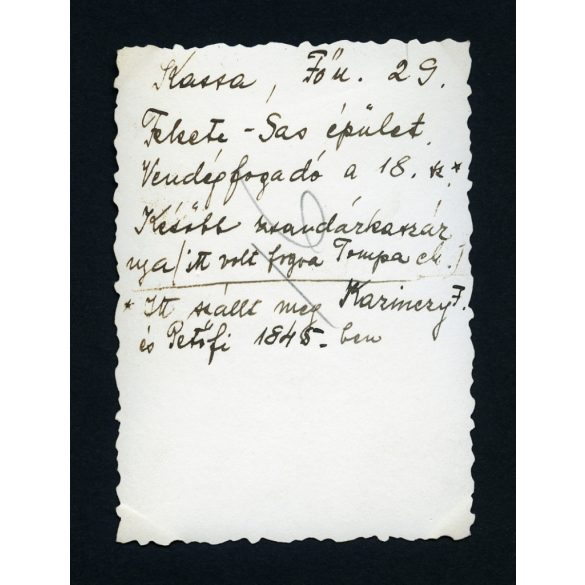 Kassa, Főu. 29.
Fekete-Sas épület.
Vendégfogadó a 18. sz*
Később zsandárkaszár
nya/itt volt fogva Tompa M.)
* Itt szállt meg Kazinczy F.
és Petőfi 1845-ben